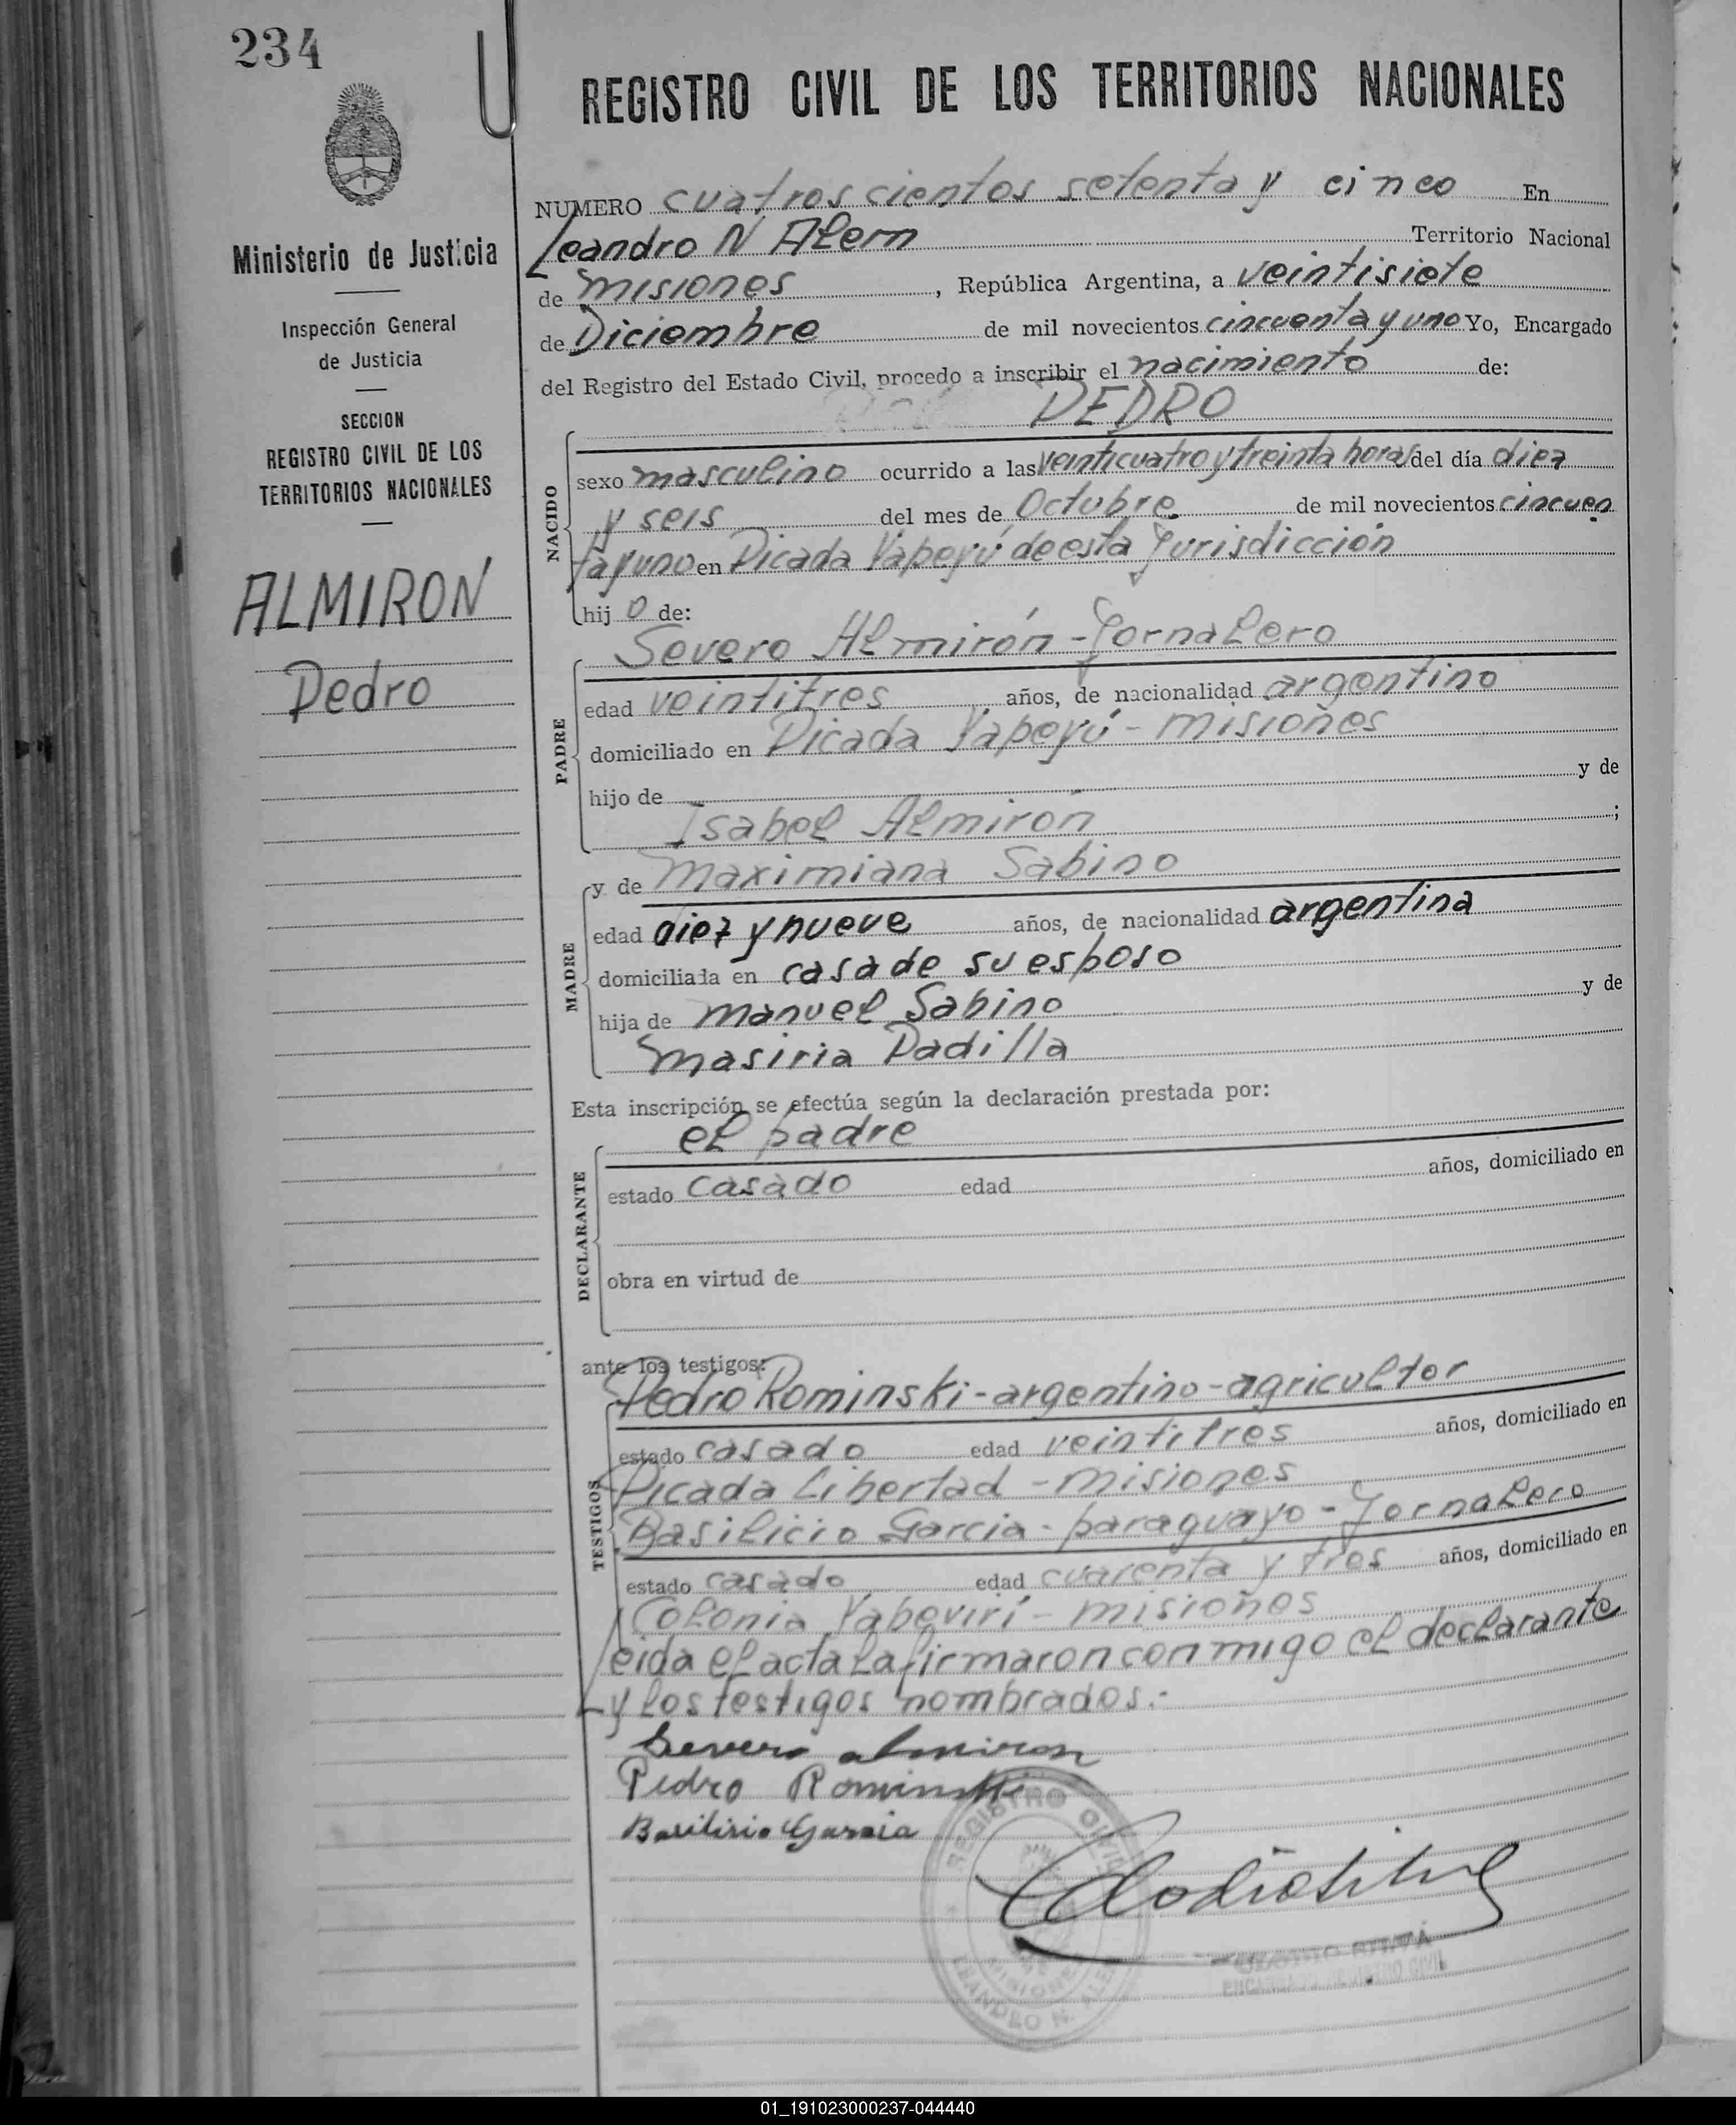 234
REGISTRO CIVIL DE LOS TERRITORIOS NACIONALES
Ministerio de Justicia
Inspección General
de Justicia
SECCION
REGISTRO CIVIL DE LOS
TERRITORIOS NACIONALES
ALMIRON
Pedro
NUMERO cuatros cientos setenta y cinco En
Leandro N Alem Territorio Nacional
de misiones, República Argentina, a veintisiete
de Diciembre de mil novecientos cincuenta y uno Yo, Encargado
del Registro del Estado Civil, procedo a inscribir el nacimiento de:
PEDRO
NACIDO
sexo masculino ocurrido a las veinticuatro y treinta horas del día diez
y seis del mes de Octubre de mil novecientos cincuen
ta y uno en Picada Yapeyú de esta Jurisdicción
hij o de:
PADRE
Severo Almirón - Jornalero
edad veintitres años, de nacionalidad argentino
domiciliado en Picada Yapeyú - misiones
hijo de y de
Isabel Almirón ;
MADRE
y de Maximiana Sabino
edad diez y nueve años, de nacionalidad argentina
domiciliada en casa de su esposo
hija de manuel Sabino y de
masiria Padilla
Esta inscripción se efectúa según la declaración prestada por:
DECLARANTE
el padre
estado casado edad años, domiciliado en
obra en virtud de
ante los testigos:
TESTIGOS
Pedro Rominski - argentino - agricultor
estado casado edad veintitres años, domiciliado en
Picada Libertad - misiones
Basilicio Garcia - paraguayo - Jornalero
estado casado edad cuarenta y tres años, domiciliado en
Colonia Yabevirí - misiones
Leida el acta la firmaron conmigo el declarante
y los testigos nombrados.-
Severo almiron
Pedro Rominski
Basilisio Garsia
REGISTRO CIVIL
MISIONES
LEANDRO N. ALEM
ENCARGADO REGISTRO CIVIL
01_191023000237-044440